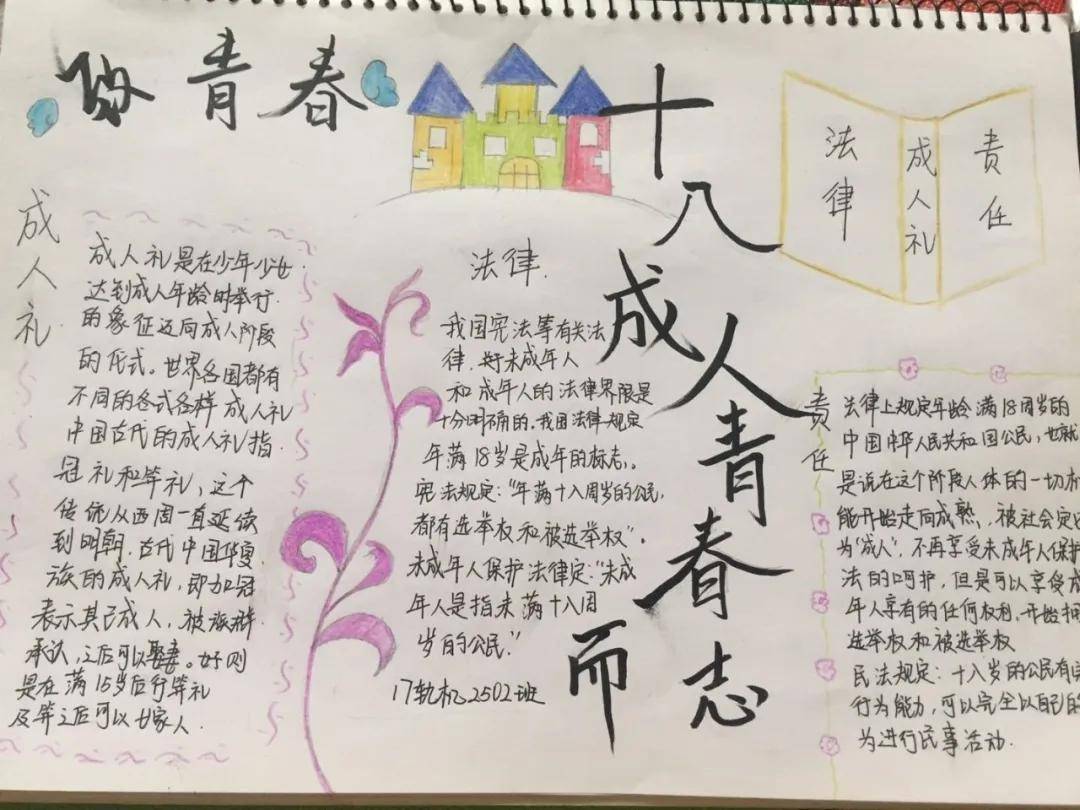 致青春
十八
成人
青春
而志
法律
成人礼
责任
成人礼
成人礼是在少年少女
达到成人年龄时举行
的象征迈向成人阶段
的仪式。世界各国都有
不同的各式各样成人礼
中国古代的成人礼指
冠礼和笄礼，这个
传统从西周一直延续
到明朝，古代中国华夏
族的成人礼，即加冠
表示其已成人，被族群
承认，之后可以娶妻。好则
是在满15岁后行笄礼
及笄之后可以嫁人．
法律．
我国宪法等有关法
律．对未成年人
和成年人的法律界限是
十分明确的．我国法律规定
年满18岁是成年的标志。
宪法规定："年满十八周岁的公民，
都有选举权和被选举权"．
未成年人保护法律定："未成
年人是指未满十八周
岁的公民"．
17轨机2502班
责任
法律上规定年龄满18周岁的
中国中华人民共和国公民，也就
是说在这个阶段人体的一切机
能开始走向成熟，被社会定
为"成人"．不再享受未成年人保护
法的呵护，但是可以享受成
年人享有的任何权利．开始拥
选举权和被选举权
民法规定：十八岁的公民有完
行为能力，可以完全以自己的
为进行民事活动．